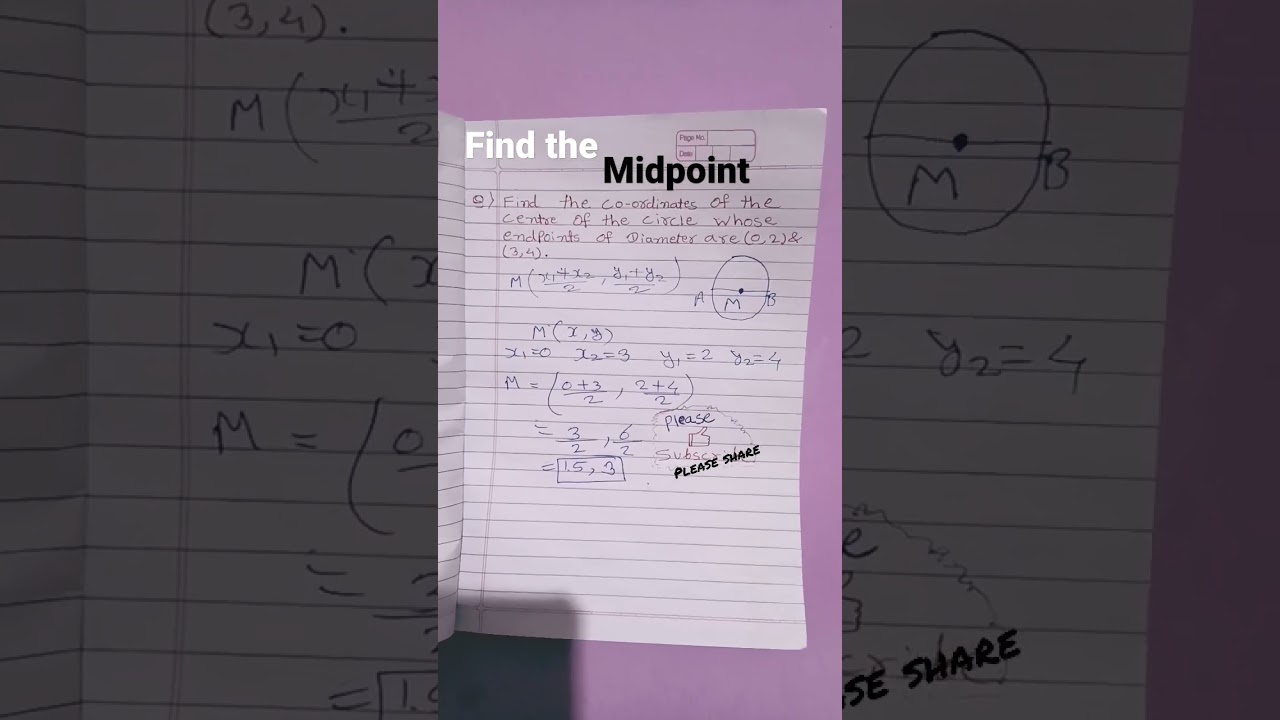 Find the
Midpoint
Page No.
Date
Q) Find the co-ordinates of the
centre of the circle whose
endpoints of Diameter are (0,2) &
(3,4).
M(x₁+x₂/2 , y₁+y₂/2)
A M B
M(x,y)
x₁=0 x₂=3 y₁=2 y₂=4
M = (0+3/2 , 2+4/2)
= 3/2 , 6/2
= 1.5, 3
please
Subsc
PLEASE SHARE
(3,4).
M(x₁+
2
M(x
x₁=0
M = (0
=
= 1.5
M B
2 y₂=4
e
SE SHARE